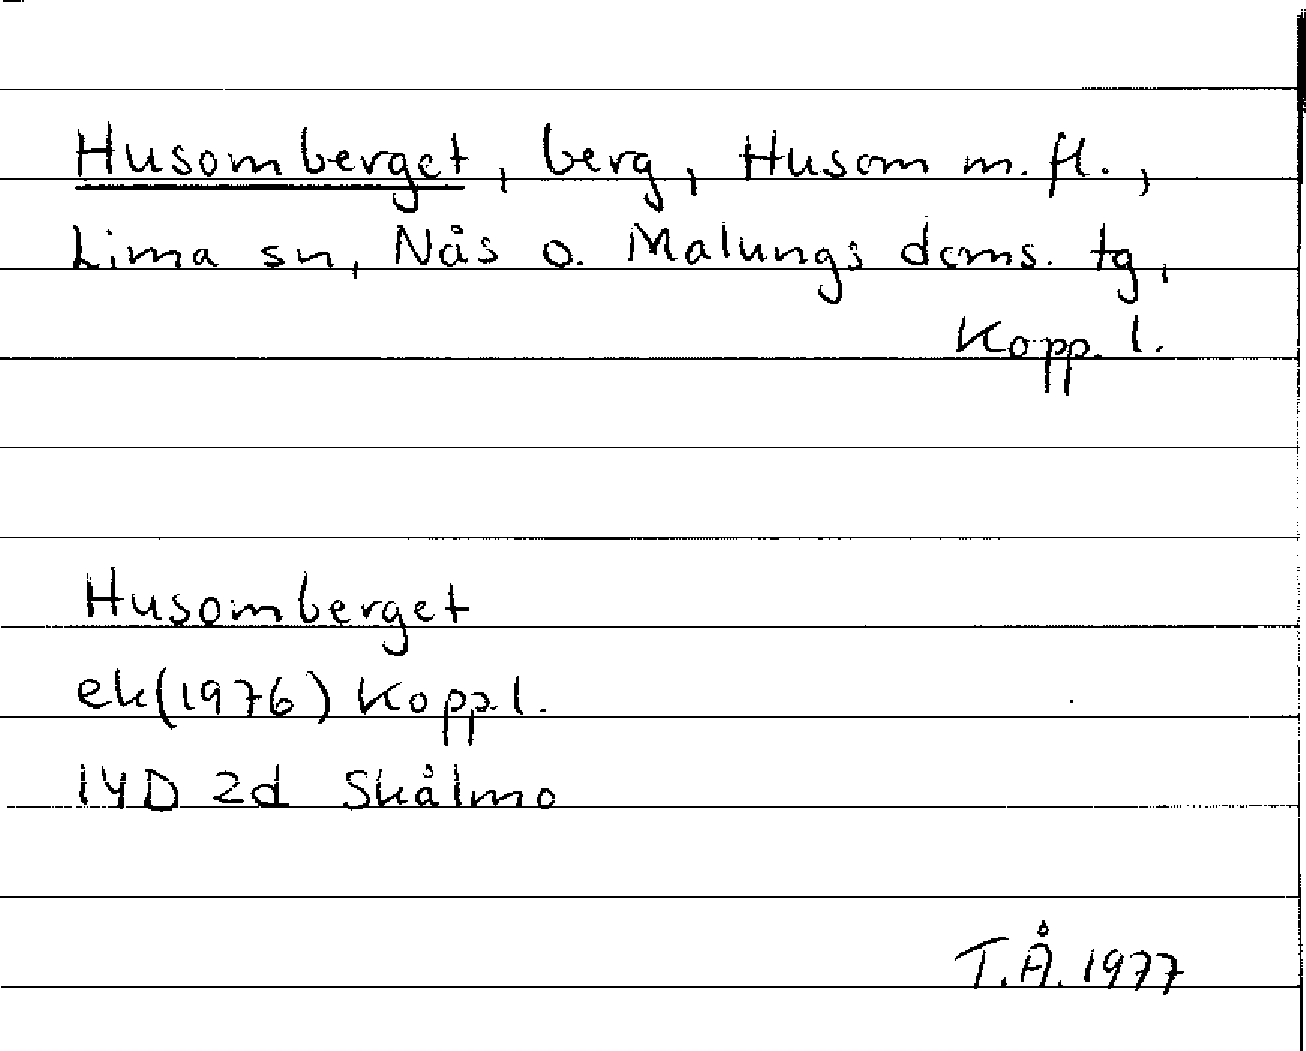 Husomberget, berg, Husom m. fl.,
Lima sn, Nås o. Malungs doms. tg,
Kopp. l.
Husomberget
ek(1976) Kopp l.
14D 2d Skålmo
T.Å. 1977